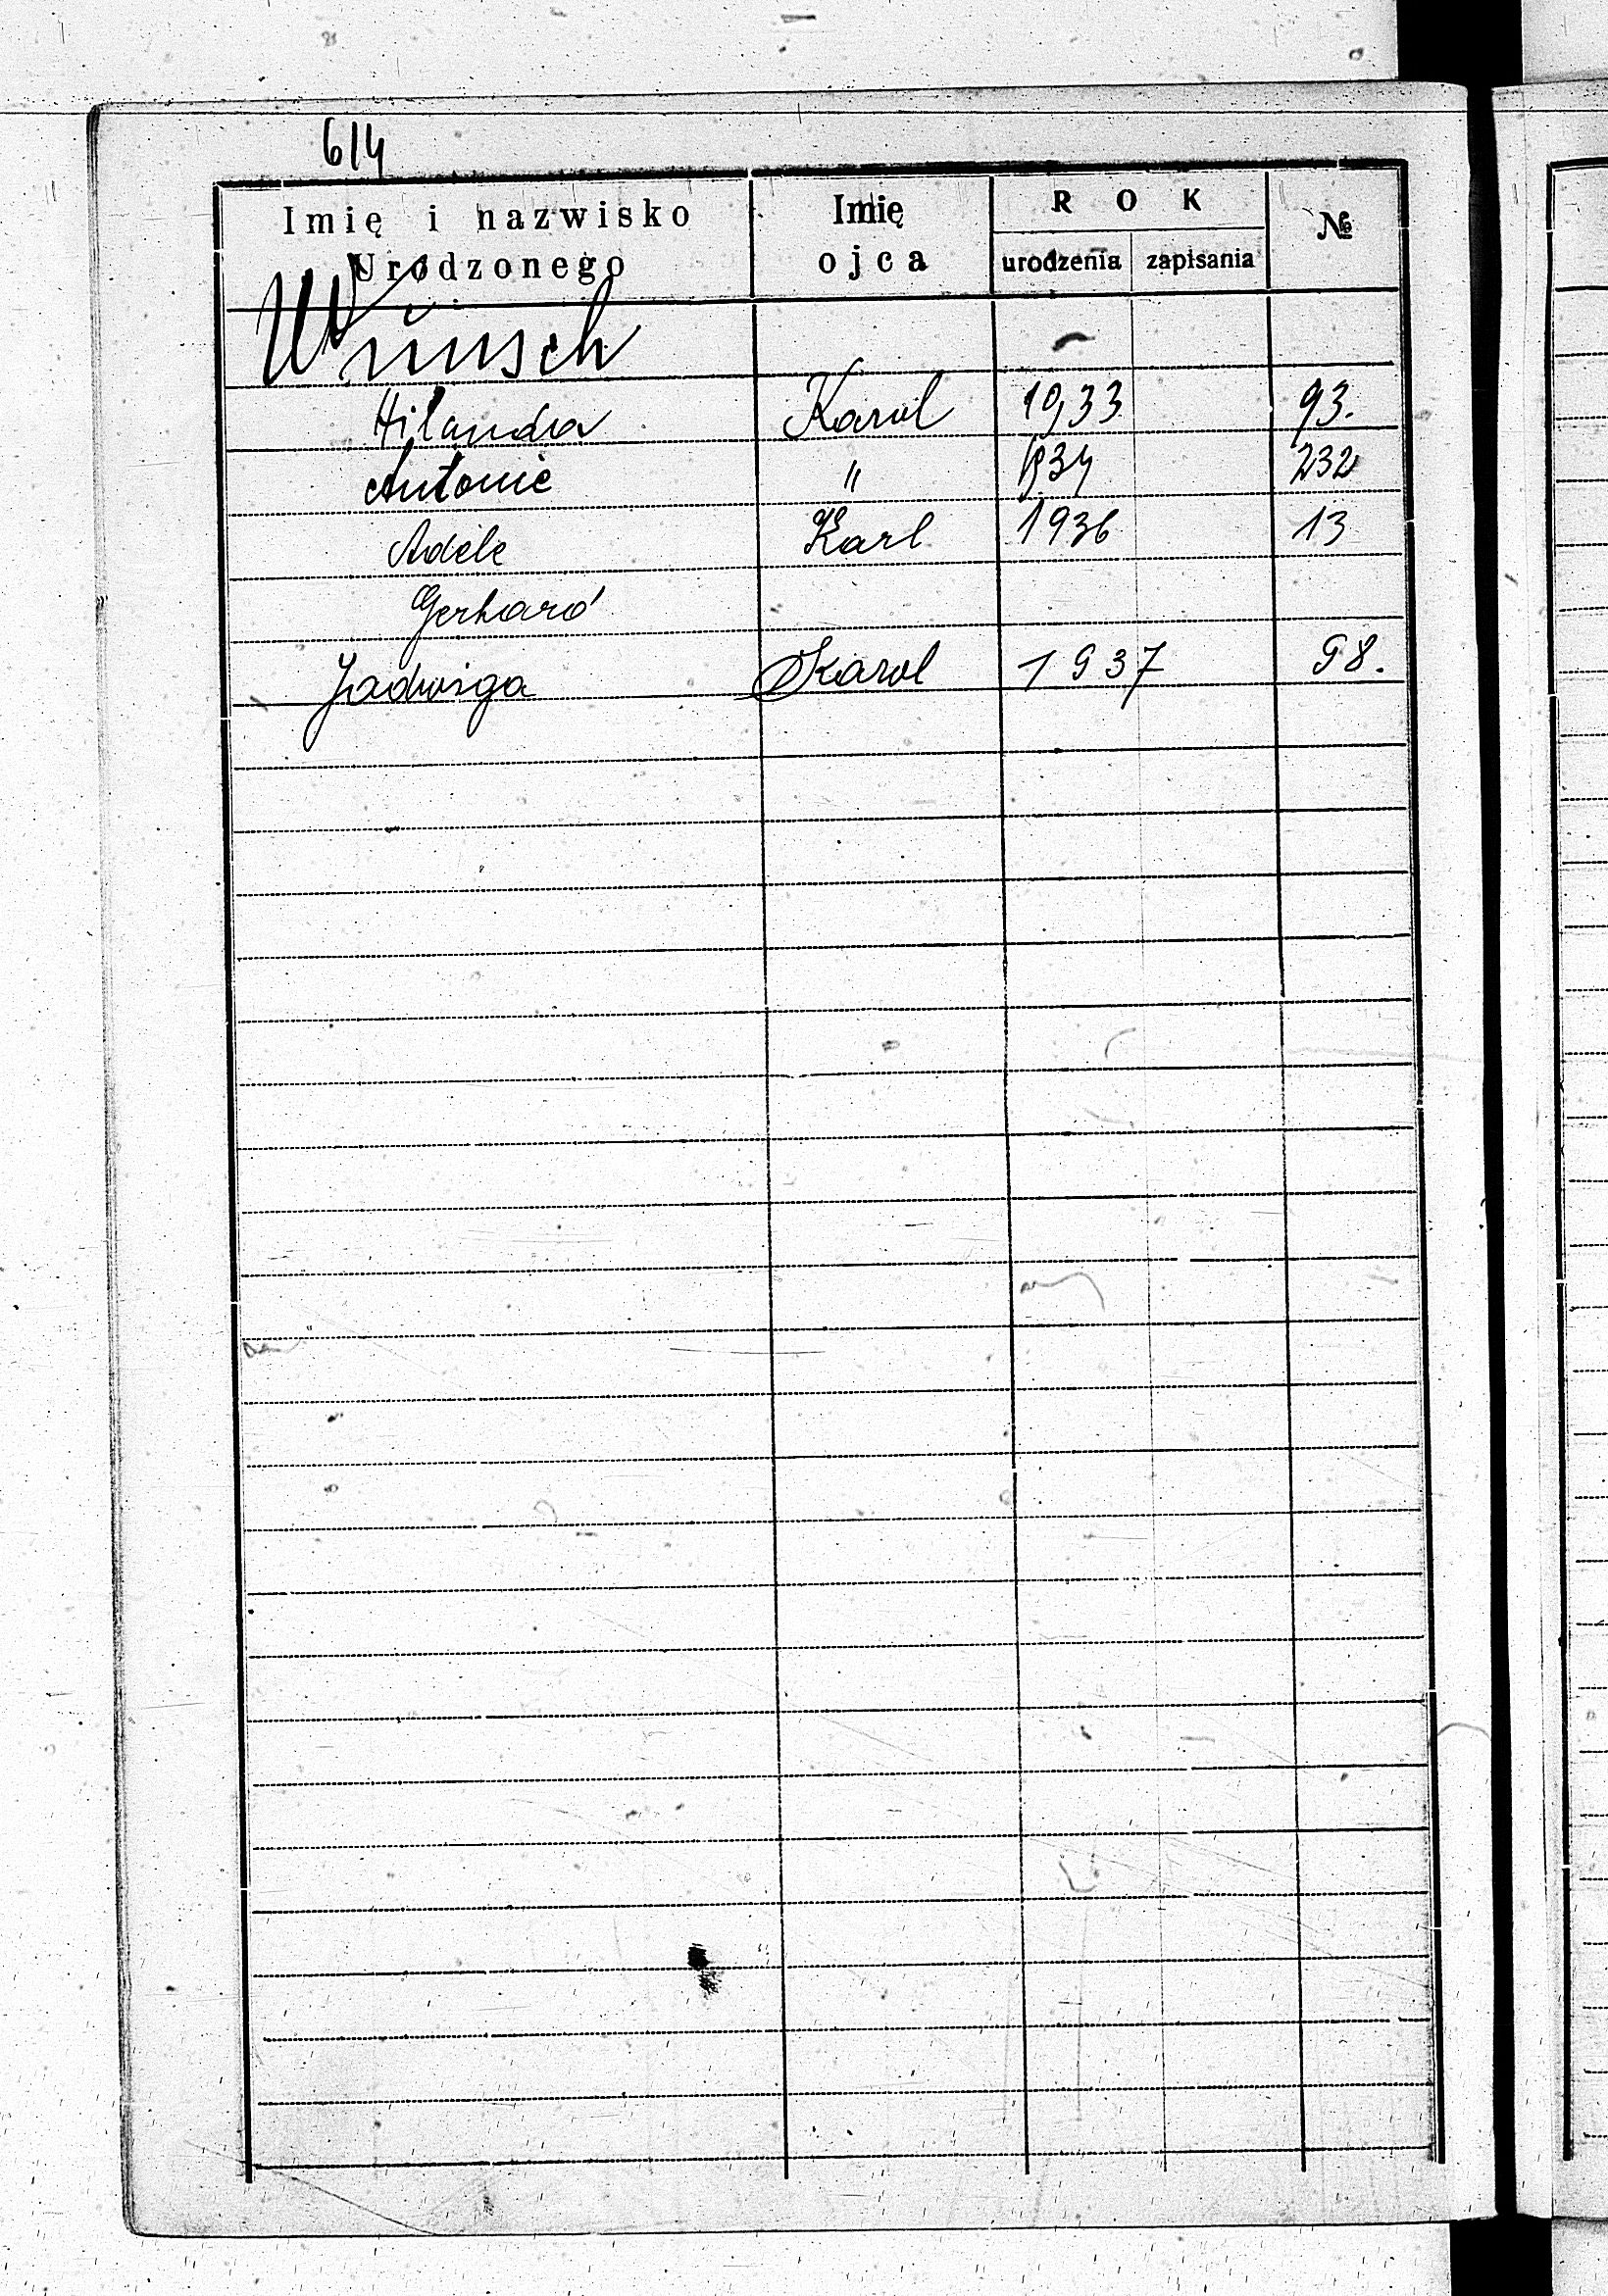 614
Imię i nazwisko Urodzonego
Imię ojca
R O K
urodzenia zapisania
№
Wünsch
Hilanda Karol 1933 93.
Antonie " 1934 232
Adele Karl 1936 13
Gerhard
Jadwiga Karol 1937 98.